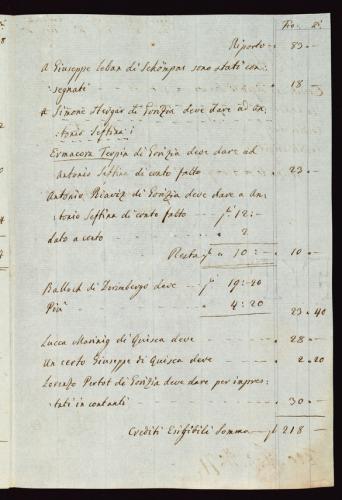 Fio. Xi.
Riporto - " 83 . -
A Giuseppe Leban di Schömpas sono stati con=
segnati - - - " 18 . -
A Simone Steigar di Gorizia deve dare ad An=
tonio Seffina i
Ermacora Toppin di Gorizia deve dare ad
Antonio Seffina di conto fatto - " 23 . -
Antonio Biaviz di Gorizia deve dare a An=
tonio Seffina di conto fatto - f 12 : -
dato a conto - " 2
Resta f " 10 : - " 10 . -
Balloch di deve - f 19 : 20
Più " 4 : 20
23 . 40
Lucca Marinig di Quisca deve - " 28 . -
Un certo Giuseppe di Quisca deve - " 2 . 20
Lorenzo Pertot di Gorizia deve dare per impres=
tati in contanti - " 30 . -
Crediti Esigibili Somma - f 218 . -